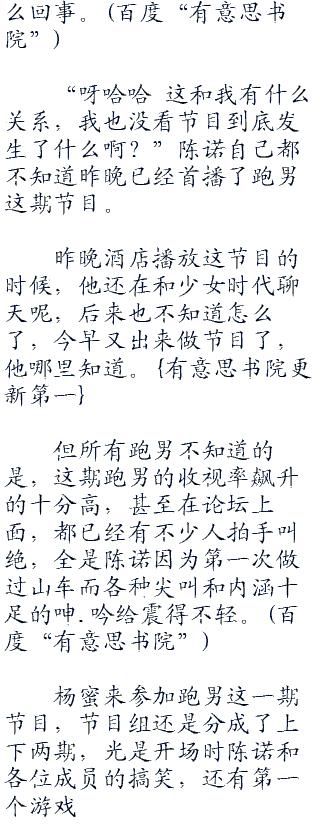 么回事。(百度“有意思书
院”)
“呀哈哈 这和我有什么
关系，我也没看节目到底发
生了什么啊？”陈诺自己都
不知道昨晚已经首播了跑男
这期节目。
昨晚酒店播放这节目的
时候，他还在和少女时代聊
天呢，后来也不知道怎么
了，今早又出来做节目了，
他哪里知道。{有意思书院更
新第一}
但所有跑男不知道的
是，这期跑男的收视率飙升
的十分高，甚至在论坛上
面，都已经有不少人拍手叫
绝，全是陈诺因为第一次做
过山车而各种尖叫和内涵十
足的呻.吟给震得不轻。(百
度“有意思书院”)
杨蜜来参加跑男这一期
节目，节目组还是分成了上
下两期，光是开场时陈诺和
各位成员的搞笑，还有第一
个游戏